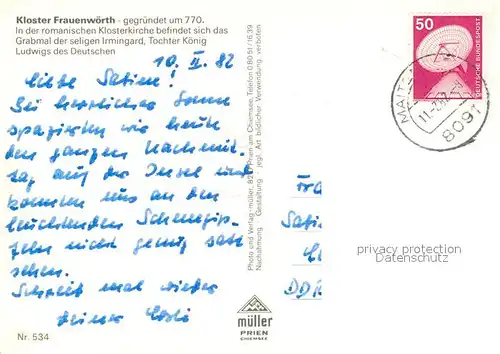 Kloster Frauenwörth - gegründet um 770.
In der romanischen Klosterkirche befindet sich das
Grabmal der seligen Irmingard, Tochter König
Ludwigs des Deutschen
10. II. 82
Liebe Sabine!
Bei herrlicher Sonne
spazierten wir heute
den ganzen Nachmit-
tag auf der Insel und
konnten uns an den
leuchtenden Schneegip-
feln nicht genug satt
sehen.
Schreibt mal wieder
Nr. 534
Photo und Verlag: müller, 8210 Prien am Chiemsee, Telefon 0 80 51 / 16 39
Nachahmung Gestaltung jegl. Art bildlicher Verwendung verboten
müller
PRIEN
CHIEMSEE
50
DEUTSCHE BUNDESPOST
8091
privacy protection
Datenschutz
DD